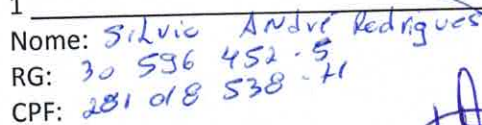 1
Nome: Silvio André Rodrigues
RG: 30 596 452-5
CPF: 281 018 538-41